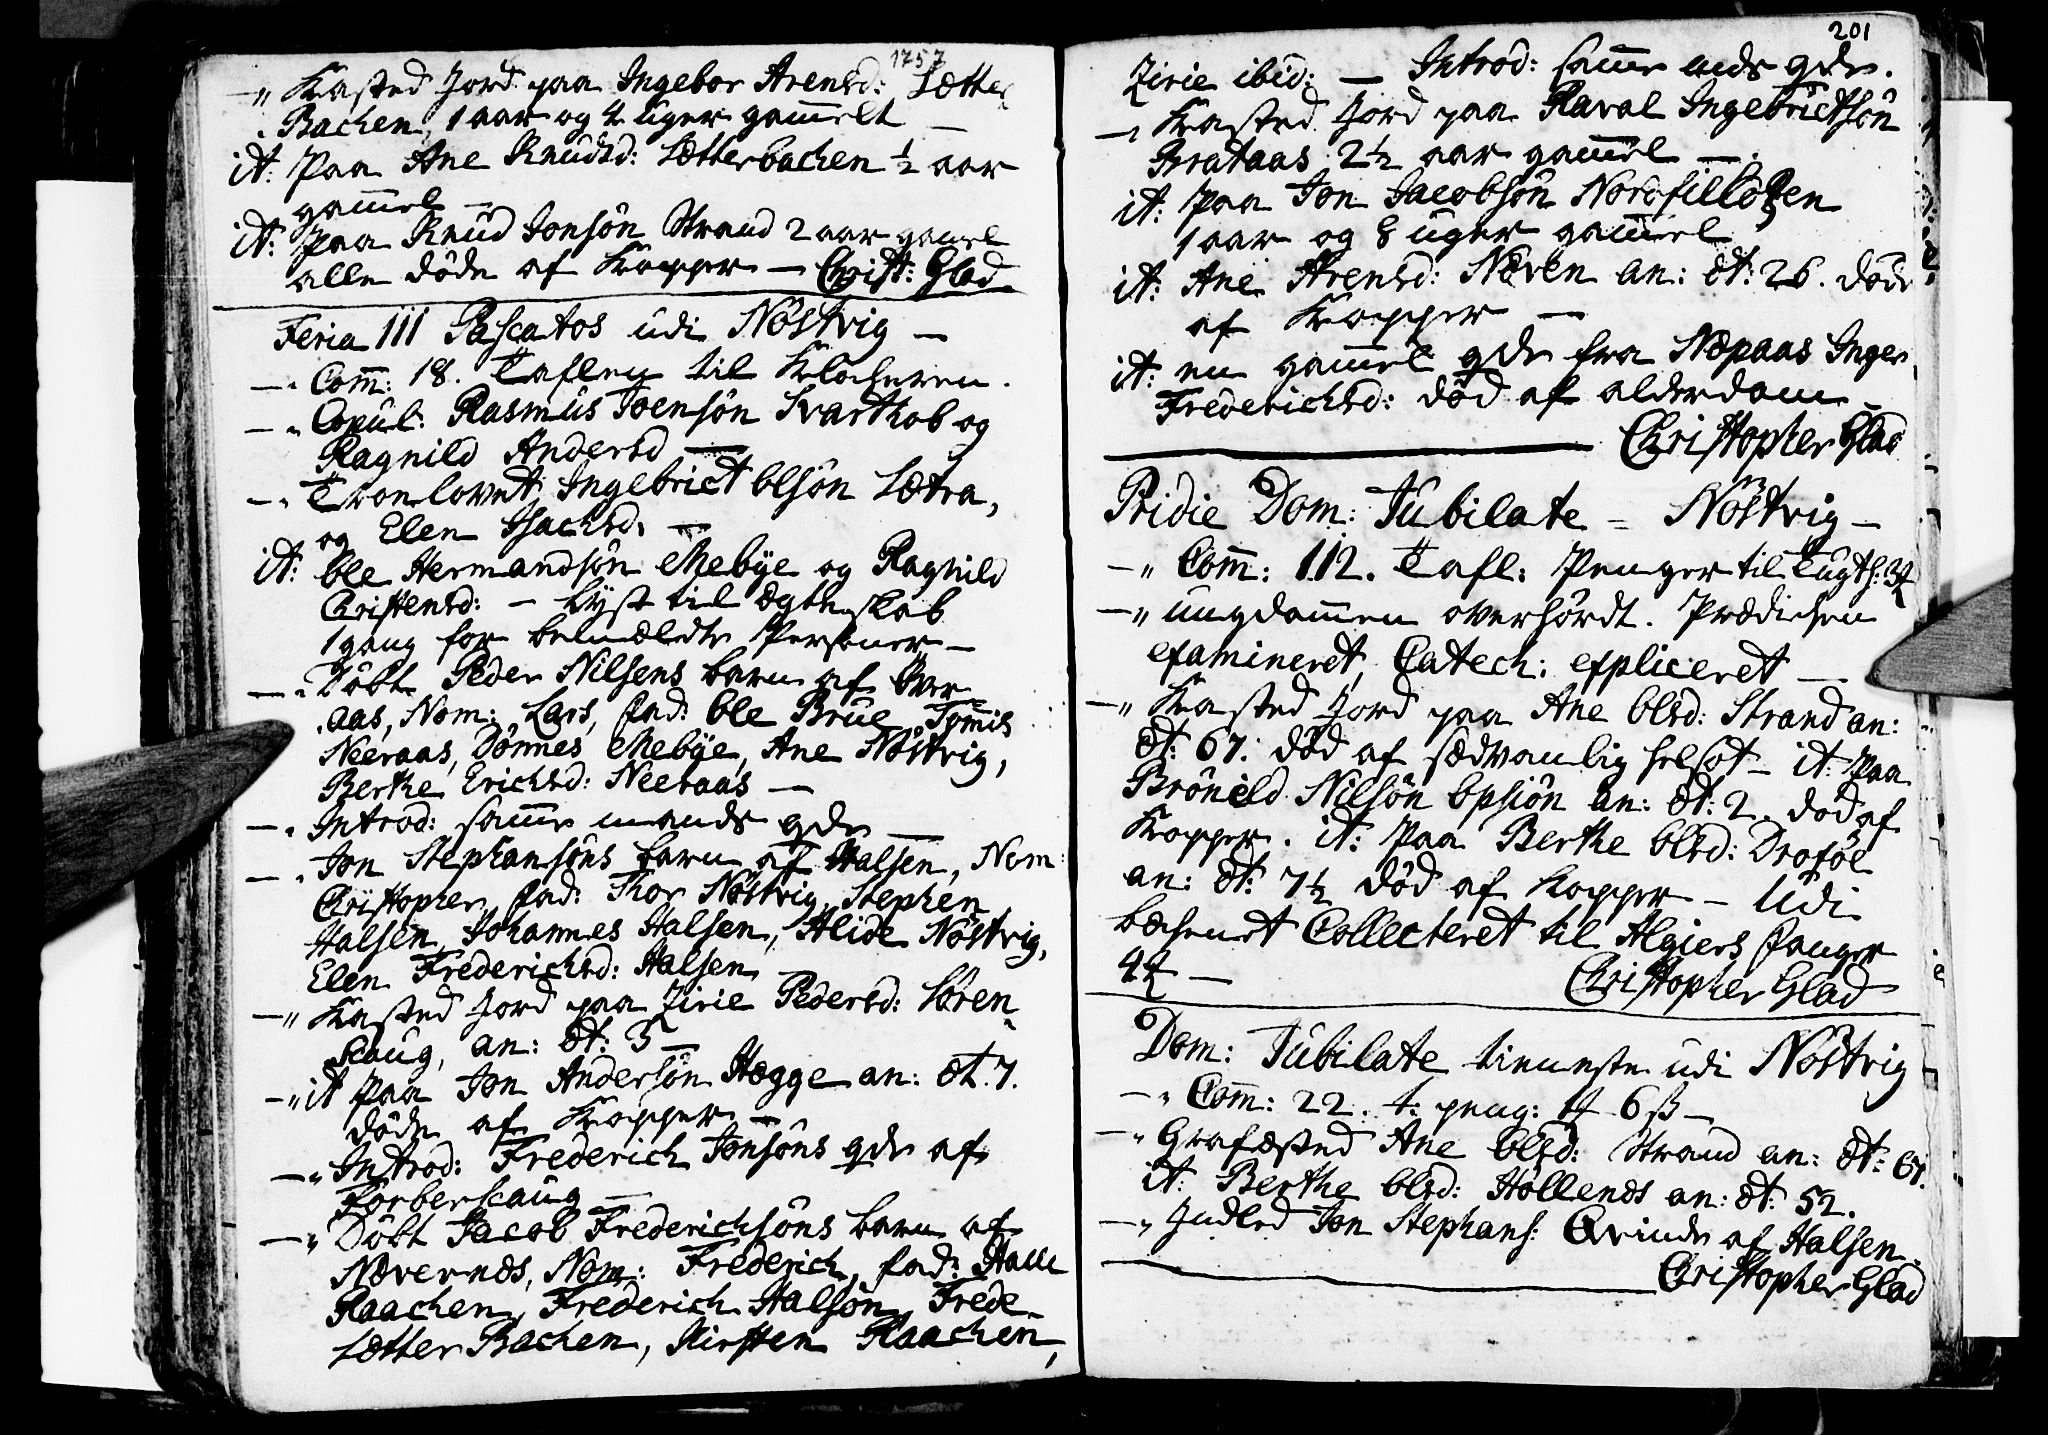 1757
-„ Kasted Jord paa Ingebor Arensd: Sætter
Bachen, 1 aar og 4 uger gamelt —
it: Paa Ane Knudsd: Sætterbachen ½ aar
gamel —
it: Paa Knud Jonsön Strand 2 aar gamel
alle döde af Kopper — Christ: Glad
Feria III Pascatos udi Nöstvig —
—„ Com: 18. Taflen til Klocheren.
—„ Copul: Rasmus Joensön Svarthob og
Ragnild Andersd —
—„ Tronlovet; Ingebrict Olsön Sætra,
og Elen Isachsd: —
it: Ole Hermandsön Mebÿe og Ragnild
Christensd: — Lÿst til Ægteskab
1 gang for bemældte Personer —
—„ Döbt Peder Nilsens barn af Over
aas, Nom: Lars, fad: Ole Brue, Tomis
Neeraas, Dönnes Mebÿe, Ane Nöstvig,
Berthe Erichsd: Neeraas —
—„ Introd: same mands qde —
—„ Jon Stephansöns barn af Halsen, Nom:
Christopher, fad: Thor Nöstvig, Stephen
Halsen, Johannes Halsen, Alide Nöstvig,
Elen Frederichsd: Halsen
—„ Kasted Jord paa Zirie Pedersd: Sören
skaug, an: æt: 5 —
—„ it Paa Jon Andersön Hægge an: æt. 7.
döde af Kopper —
—„ Introd: Frederich Jonsöns qde af
Torberskaug —
—„ Döbt Jacob Frederichsöns barn af
Nævernæs, Nom: Frederich, fad: Halle
Raachen, Frederich Halsön, Frede
Sætter Bachen, Kirsten Raachen,
201
Zirie ibid: — Introd: same mds qde.
—„ Kasted Jord paa Raval Ingebrictsön
Brataas 2½ aar gamel —.
it: Paa Jon Jacobsön Nordfilloßen
1 aar og 8 uger gamel
it: Ane Arensd: Næven an: æt: 26. döde
af Kopper —
it: en gamel qde fra Næpaas Inger
Frederichsd: död af alderdom —
Christopher Glad
Pridie Dom: Jubilate = Nöstvig —
—„ Com: 112. Tafl: Penger til Tugth: 3
—„ ungdommen overhördt. Prædichen
examineret, Catech: expliceret —
—„ Kasted Jord paa Ane Olsd: Strand an:
æt: 67: död af sædvanlig helsot — it: Paa
Brönild Nilsön Opsiön an: æt: 2. död af
Kopper. it: Paa Berthe Olsd: Droföe
an: æt: 7½ död af Kopper — Udi
bæchenet Collecteret til Algiers fanger
4 —
Christopher Glad
Dom: Jubilate tieneste udi Nöstvig
—„ Com: 22. t: peng: 6 ß —
—„ Grafæsted Ane Olsd: Strand an: æt: 67.
it: Berthe Olsd: Hollenæs an: æt: 52.
—„ Indled Jon Stephans: Qvinde af Halsen
Christopher Glad